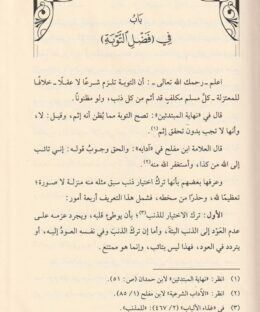 بَابٌ
فِي (فَضْلِ التَّوْبَةِ)
اعلم ـ رحمك الله تعالى ـ : أن التوبة تلزم شرعًا لا عقلًا ـ خلافًا
للمعتزلة ـ كلَّ مسلم مكلفٍ قد أثم من كل ذنب، ولو مظنونًا.
قال في «نهاية المبتدئين»: تصح التوبة مما يُظن أنه إثم، وقيل: لا،
وأنها لا تجب بدون تحقق إثم(١).
قال العلامة ابن مفلح في «آدابه»: والحق وجوبُ قوله: إني تائب
إلى الله من كذا، وأستغفر الله منه(٢).
وعرفها بعضهم بأنها تركُ اختيار ذنب سبق مثله منه منزلة لا صورة؛
تعظيمًا لله، وحذرًا من سخطه، فشمل هذا التعريف أربعة أمور:
الأول: ترك الاختيار للذنب(٣)؛ بأن يوطئ قلبه، ويجرد عزمه على
عدم العَوْد إلى الذنب البتة، وأما إن تركَ الذنبَ وفي نفسه العودُ إليه، أو
يتردد في العود، فهذا ليس بتائب، وإنما هو ممتنع.
(١) انظر: «نهاية المبتدئين» لابن حمدان (ص: ٥١).
(٢) انظر: «الآداب الشرعية» لابن مفلح (١/ ٨٥).
(٣) في «غذاء الألباب» (٢/ ٤٦٧): «للمذنب».